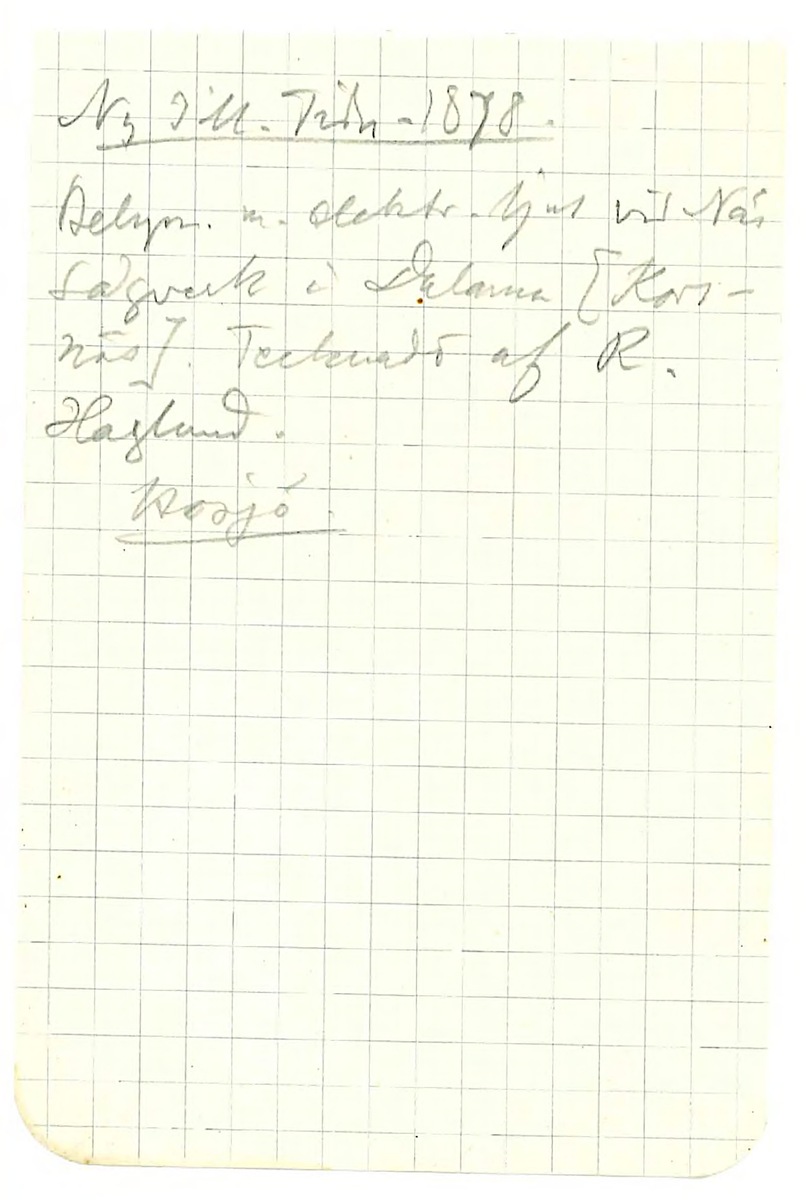 Ny Ill. Tidn. 1878.
Belysn. m. elektr. ljus vid Näs
Sågverk i Dalarna [Kors-
näs]. Tecknadt af R.
Haglund.
Hosjö.